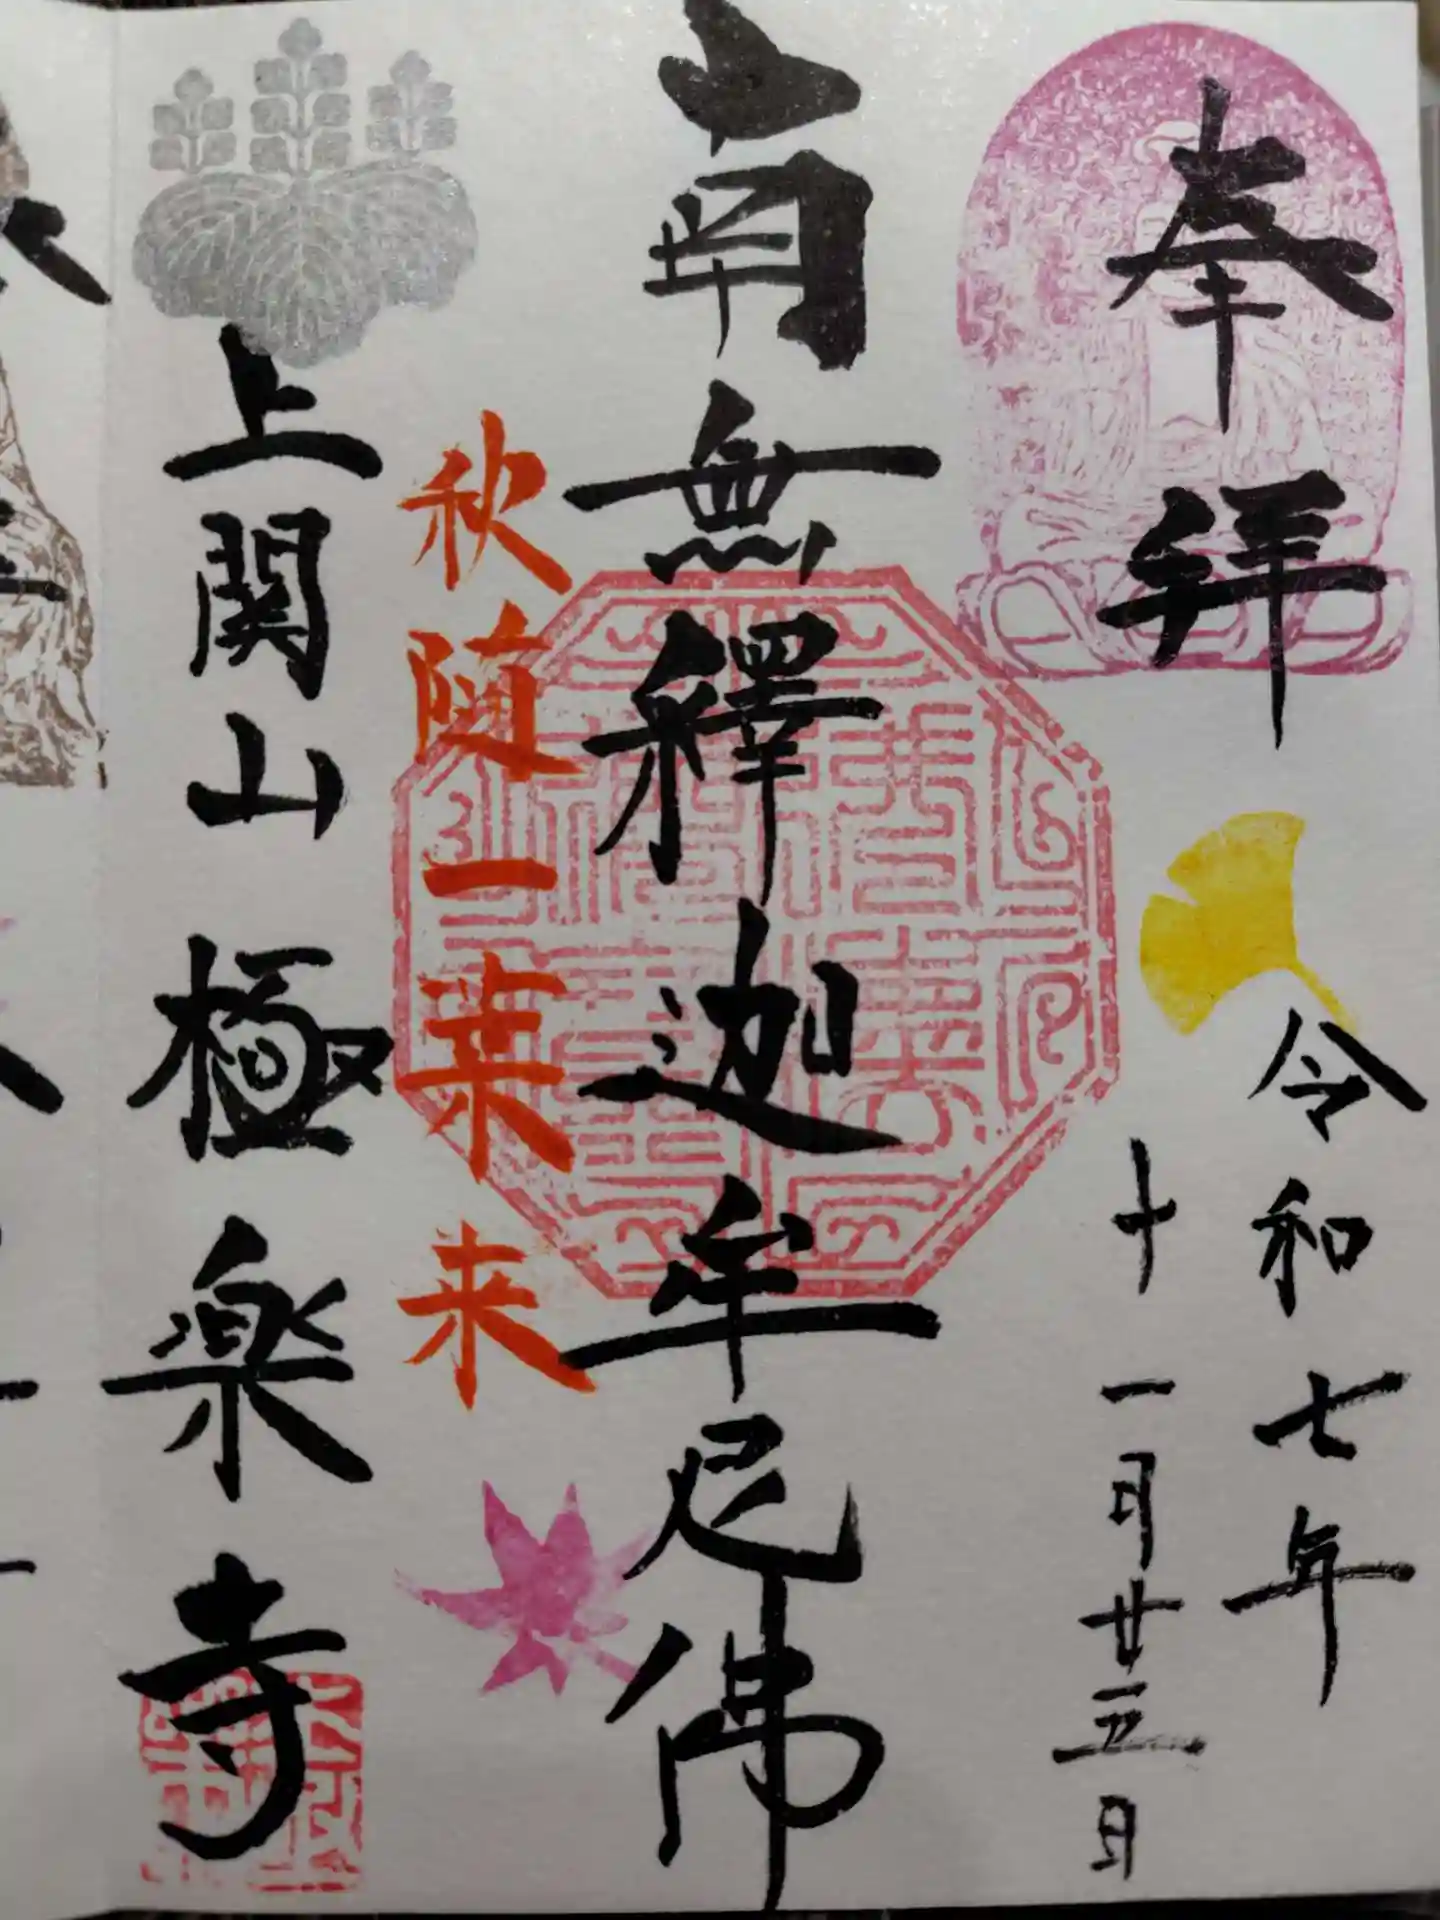 奉拝
令和七年
十一月廿三日
南無釋迦牟尼佛
秋随一葉来
上関山 極楽寺